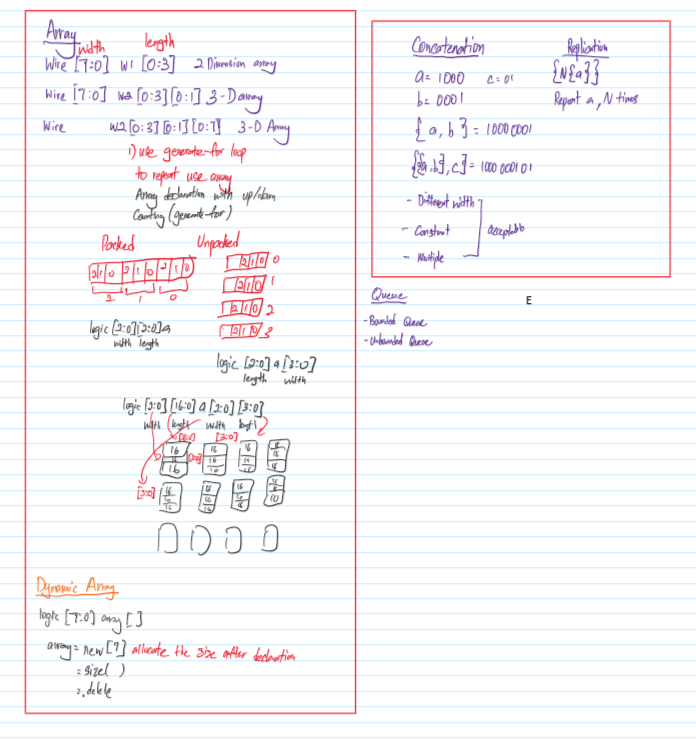 Array
width length
Wire [7:0] W1 [0:3] 2 Dimension array
Wire [7:0] W2 [0:3][0:1] 3-D array
Wire W2[0:3][0:1][0:7] 3-D Array
1) use generate-for loop
to repeat use array
Array declaration with up/down
Counting (generate-for)
Packed Unpacked
2 1 0 2 1 0 2 1 0
2 1 0
2 1 0 0
2 1 0 1
2 1 0 2
2 1 0 3
logic [2:0][2:0] a
width length
logic [2:0] a [3:0]
length width
logic [2:0] [16:0] a [2:0] [3:0]
width length width length
[3:0]
16 16 16 16
16 16 16 16
Dynamic Array
logic [7:0] array [ ]
array = new [7] allocate the size after declaration
= size( )
=.delete
Concatenation Replication
a = 1000 c = 01 {N{a}}
b = 0001 Repeat a, N times
{a, b} = 10000001
{{a,b},c} = 1000000101
- Different width
- Constant acceptable
- Multiple
Queue
E
- Bounded Queue
- Unbounded Queue